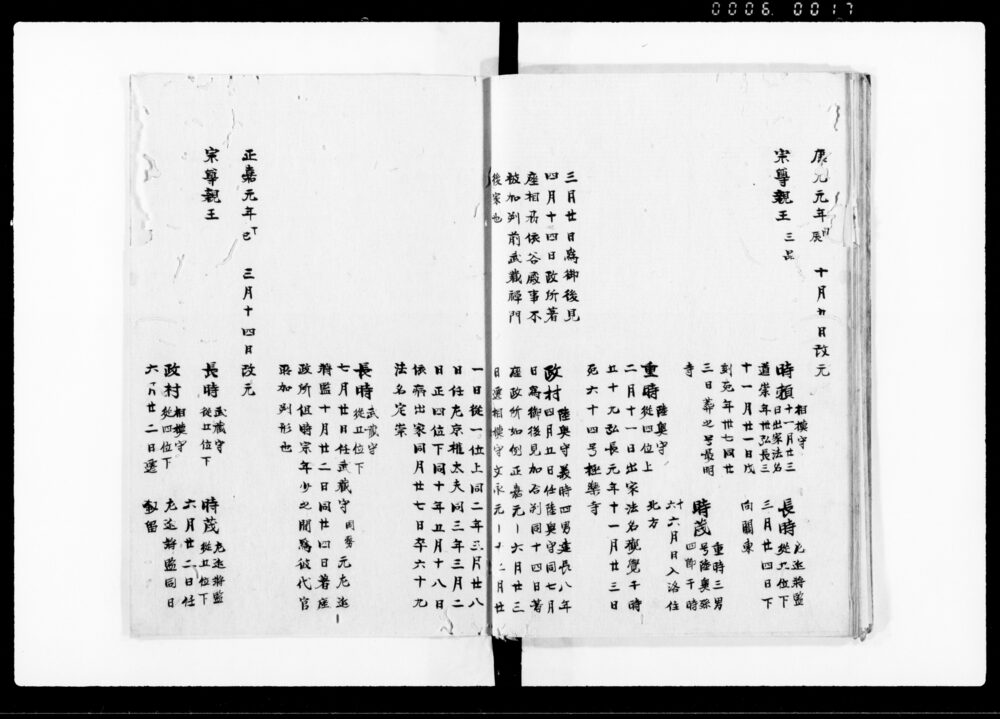 0006.0017
康元元年丙辰 十月五日改元
宗尊親王 三品
時頼 相模守
十一月廿三
日出家法名
道崇年卅弘長三
十一月廿一日戌
剋死年卅七同廿
三日葬之号最明
寺
長時 左近将監
従五位下
三月廿四日下
向關東
時茂 重時三男
号陸奥弥
四郎于時
十六
六月日入洛住
北方
重時 陸奥守
従四位上
二月十一日出家法名覺覺于時
五十九弘長元年十一月廿三日
死六十四号極樂寺
政村 陸奥守義時四男建長八年
四月五日任陸奥守同七月
日為御後見加右判同十四日著
座政所如例正嘉元ー六月廿三
日遷相模守文永元ー十二月廿
三月廿日為御後見
四月十四日政所著
座相再俟谷殿事不
被加判前武蔵禅門
後家也
一日従一位上同二年三月廿八
日任左京權太夫同三年三月二
日正四位下同十年五月十八日
依病出家同月廿七日卒六十九
法名定崇
長時 武蔵守
従五位下
七月廿日任武蔵守 同男元左近ー
将監十月廿二日同廿四日著座
政所但時宗年少之間為彼代官
所加判形也
正嘉元年丁巳 三月十四日改元
宗尊親王
長時 武蔵守
従五位下
時茂 左近将監
従五位下
六月廿二日任
左近将監同日
叙留
政村 相模守
従四位下
六月廿二日遷